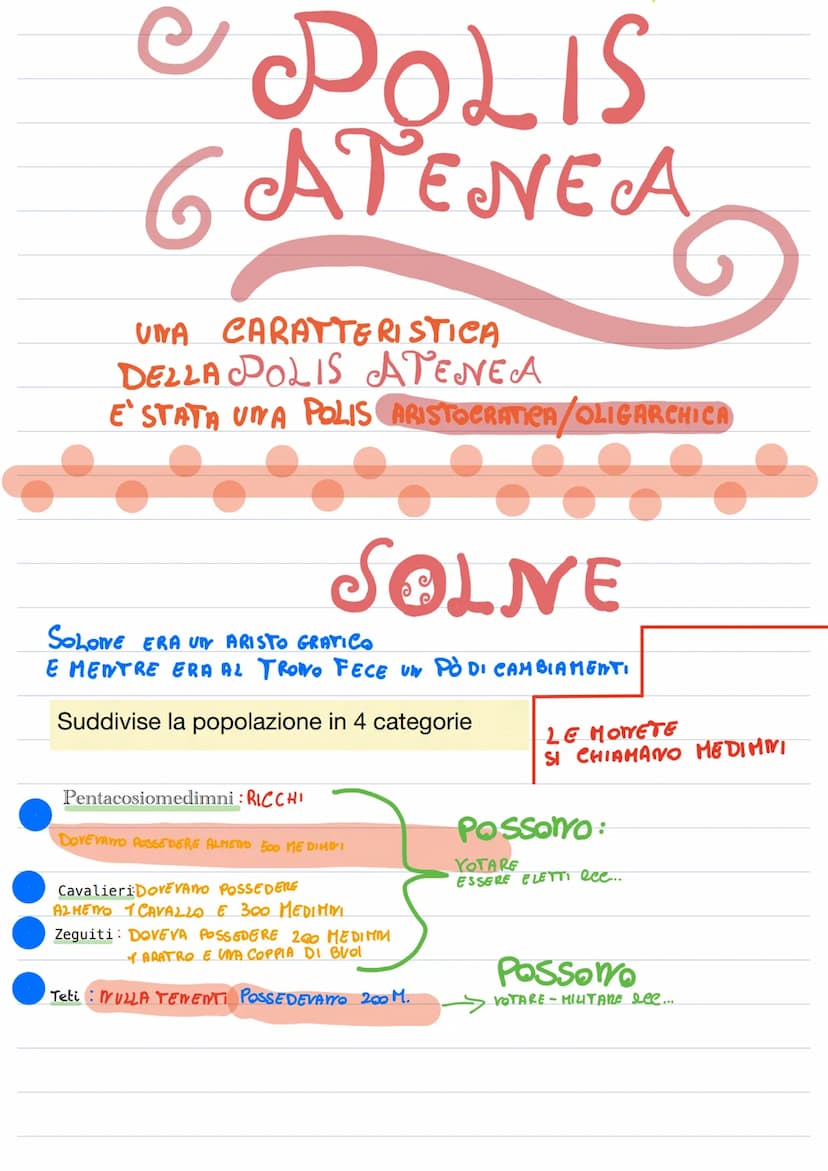 POLIS
ATENEA
UNA CARATTERISTICA
DELLA POLIS ATENEA
E' STATA UNA POLIS ARISTOCRATICA/OLIGARCHICA
SOLNE
SOLONE ERA UN ARISTO GRATICO
E MENTRE ERA AL TRONO FECE UN PÒ DI CAMBIAMENTI
Suddivise la popolazione in 4 categorie
LE MONETE
SI CHIAMANO MEDIMNI
Pentacosiomedimni : RICCHI
DOVEVANO POSSEDERE ALMENO 500 MEDIMNI
Cavalieri: DOVEVANO POSSEDERE
ALMENO 1 CAVALLO E 300 MEDIMNI
Zeguiti : DOVEVA POSSEDERE 200 MEDIMNI
1 ARATRO E UNA COPPIA DI BUOI
POSSONO:
VOTARE
ESSERE ELETTI ecc...
Teti : NULLA TENENTI POSSEDEVANO 200 M.
POSSONO
VOTARE - MILITARE ecc...